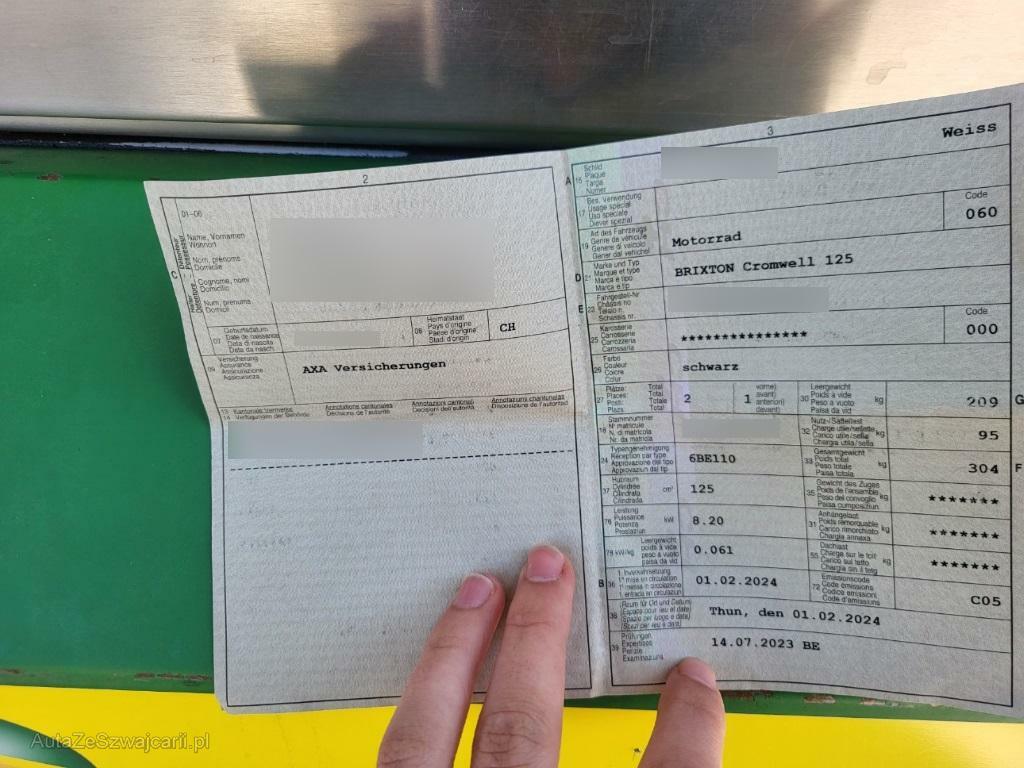 2
01-06
C
Name, Vornamen
Wohnort
Nom, prénoms
Domicile
Cognome, nomi
Domicilio
Num, prenums
Domicil
07
Geburtsdatum
Date de naissance
Data di nascita
Data da nasch.
08
Heimatstaat
Pays d'origine
Paese d'origine
Stadi d'origin
CH
09
Versicherung
Assurance
Assicurazione
Assicuranza
AXA Versicherungen
13
14
Verfügungen der Behörde
Annotations cantonales
Décisions de l'autorité
Annotazioni cantonali
Decisioni dell'autorità
Annotaziuns chantunalas
Disposiziuns da l'autoritad
3
A
15
Schild
Plaque
Targa
Numer
Weiss
17
Bes. Verwendung
Usage spécial
Uso speciale
Diever spezial
19
Art des Fahrzeugs
Genre de véhicule
Genere di veicolo
Gener dal vehichel
Motorrad
Code
060
D
21
Marke und Typ
Marque et type
Marca e tipo
Marca e tip
BRIXTON Cromwell 125
E
23
Fahrgestell-Nr.
Châssis no
Telaio n.
Schassis nr.
25
Karosserie
Carrosserie
Carrozzeria
Carossaria
***************
Code
000
26
Farbe
Couleur
Colore
Colur
schwarz
27
Plätze: Total
Places: Total
Posti: Totale
Plazs: Total
2
1
vorne)
avant)
anteriori)
davant)
30
Leergewicht
Poids à vide
Peso a vuoto
Paisa da vid
kg
209
G
18
Stammnummer
N° matricule
N. di matricola
Nr. da matricla
32
Nutz-/Sattellast
Charge utile/sellette
Carico utile/sella
Chargia utila/sella
kg
95
24
Typengenehmigung
Réception par type
Approvazione del tipo
Approvaziun dal tip
6BE110
33
Gesamtgewicht
Poids total
Peso totale
Paisa totala
kg
304
F
37
Hubraum
Cylindrée
Cilindrata
Cilindrada
cm³
125
35
Gewicht des Zuges
Poids de l'ensemble
Peso del convoglio
Paisa cumposiziun
kg
*******
76
Leistung
Puissance
Potenza
Prestaziun
kW
8.20
31
Anhängelast
Poids remorquable
Carico rimorchiato
Chargia annexa
kg
*******
78
kW/kg
Leergewicht
poids à vide
peso a vuoto
paisa da vid
0.061
55
Dachlast
Charge sur le toit
Carico sul tetto
Chargia sin il tetg
kg
*******
B
36
1. Inverkehrsetzung
1re mise en circulation
1a messa in circolazione
1. entrada en circulaziun
01.02.2024
72
Emissionscode
Code émissions
Codice emissioni
Code d'emissiuns
C05
38
Raum für Ort und Datum
Espace pour lieu et date
Spazio per luogo e data
Spazi per lieu e data
Thun, den 01.02.2024
39
Prüfungen
Expertises
Perizie
Examinaziuns
14.07.2023 BE
AutaZeSzwajcarii.pl